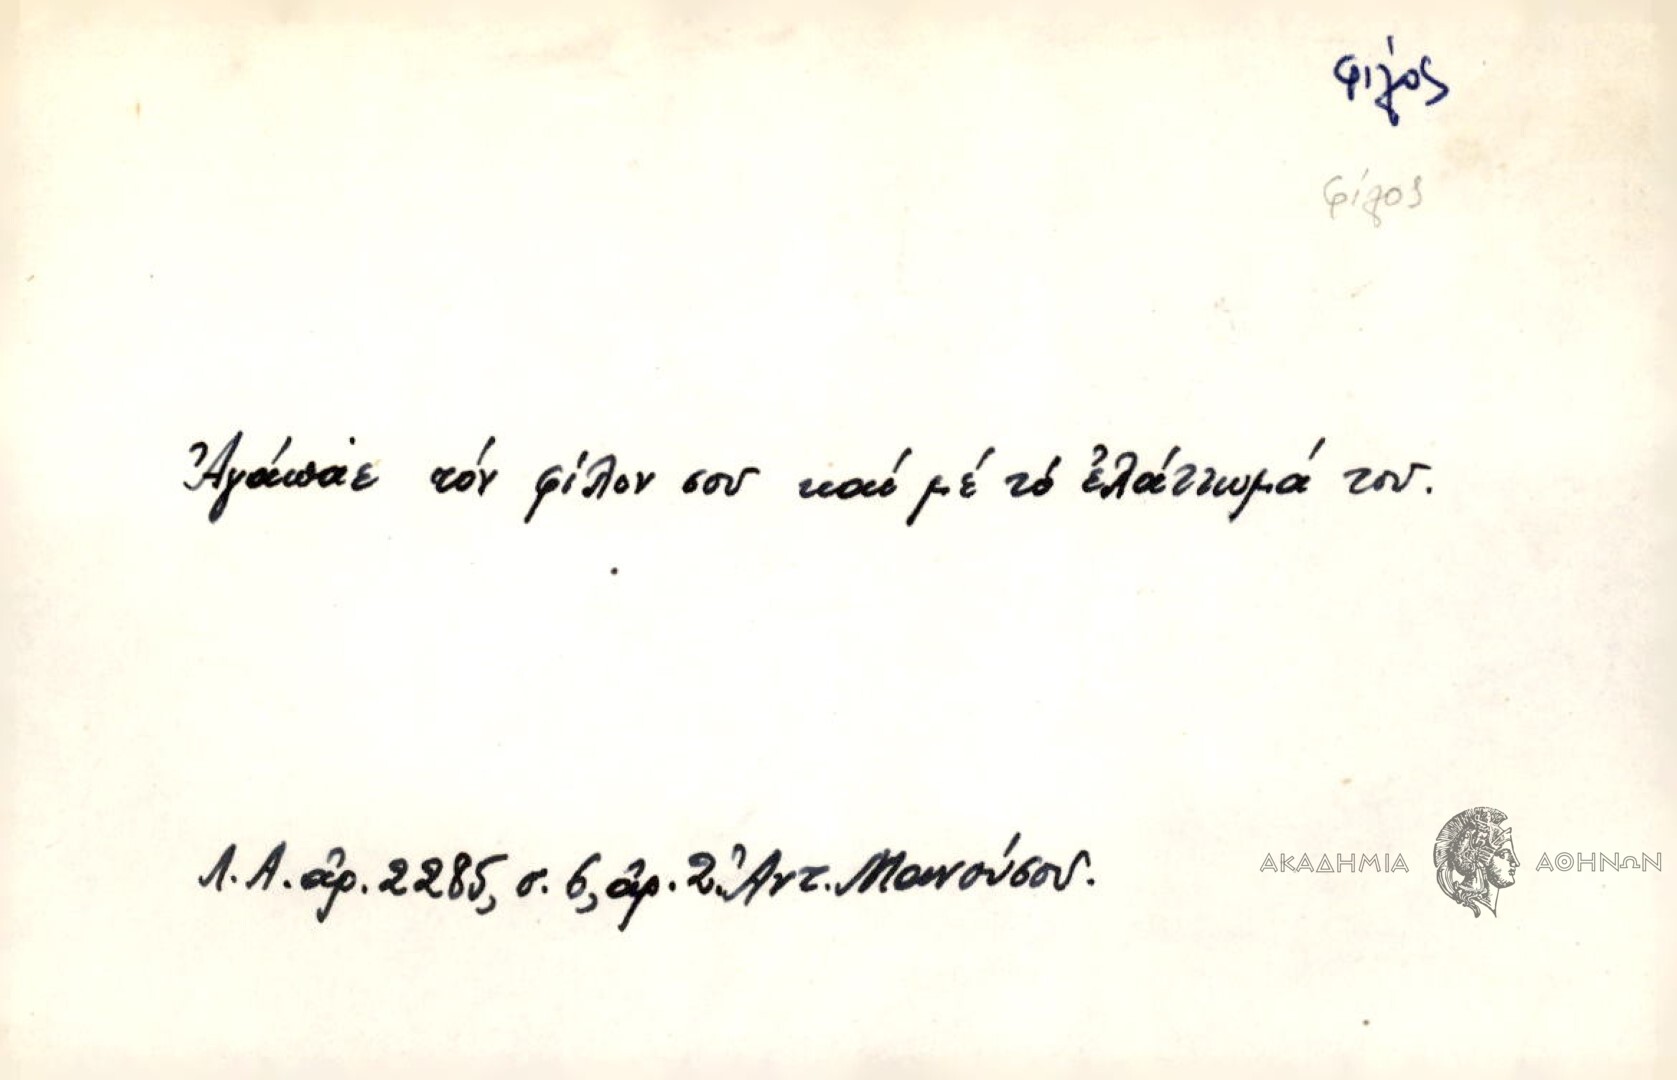 φίλος
φίλος
Ἀγάπαε τόν φίλον σου καί μέ τό ἐλάττωμά του.
Λ.Α. ἀρ. 2285, σ. 6, ἀρ. 2. Ἀντ. Μανούσου.
ΑΚΑΔΗΜΙΑ ΑΘΗΝΩΝ